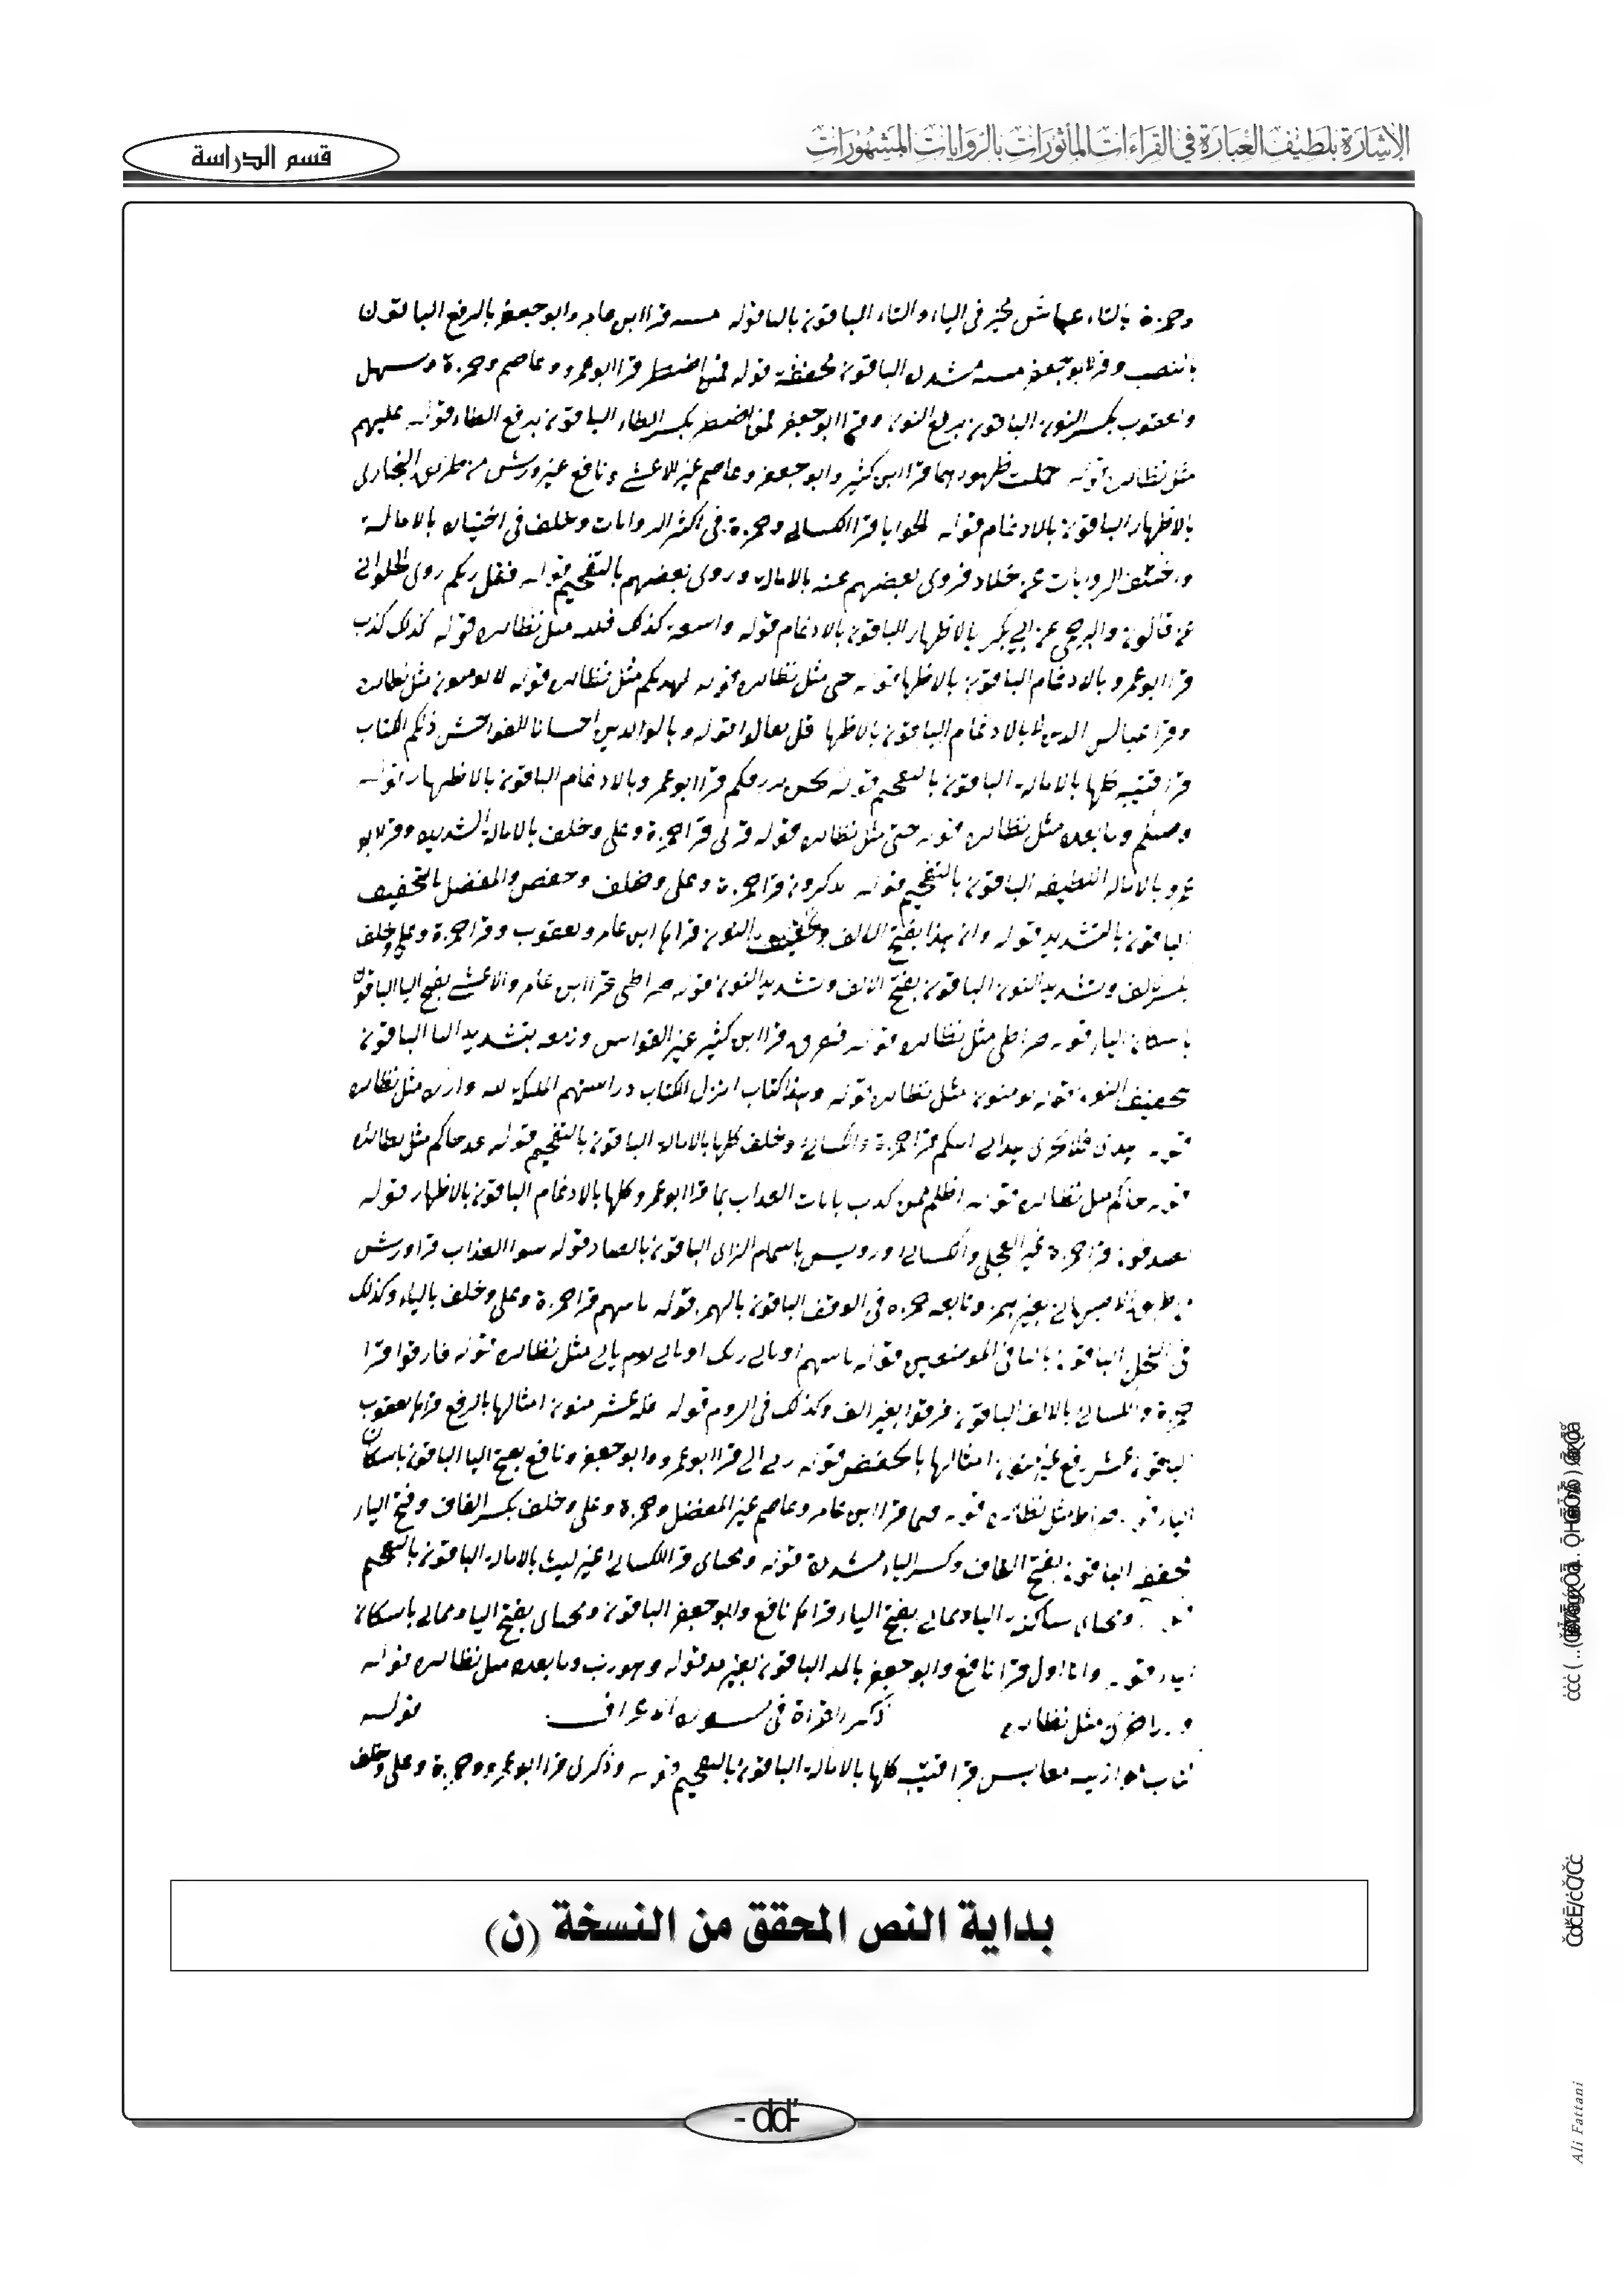 الإشارة بلطيف العبارة في القراءات المأثورات بالروايات المشهورات
قسم الدراسة
وحمزة بالتاء عباس مخير في الياء والتاء الباقون بالياء قوله ميتة قرا ابن عامر وابو جعفر بالرفع الباقون
بالنصب وقرا ابو جعفر ميتة مشددة الباقون مخففة قوله فمن اضطر قرا ابو عمرو وعاصم وحمزة وسهل
ويعقوب بكسر النون الباقون برفع النون وقرا ابو جعفر فمن اضطر بكسر الطاء الباقون برفع الطاء قوله عليهم
مثل نظائره قوله حملت ظهورهما قرا ابن كثير وابو جعفر وعاصم غير الاعشى ونافع غير ورش من طريق البخاري
بالاظهار الباقون بالادغام قوله الحوايا قرا الكسائي وحمزة في اكثر الروايات وخلف في اختياره بالامالة
واختلف الروايات عن خلاد فروى بعضهم عنه بالامالة وروى بعضهم بالتفخيم قوله فقل ربكم روى الحلواني
عن قالون والبرجمي عن ابي بكر بالاظهار الباقون بالادغام قوله واسعة كذلك مثل نظائره قوله كذلك كذب
قرا ابو عمرو بالادغام الباقون بالاظهار قوله حتى مثل نظائره قوله لهديكم مثل نظائره قوله لا يومنون مثل نظائره
وقرا عباس بالادغام الباقون بالاظهار قل تعالوا قوله وبالوالدين احسانا الفواحش ذلكم الكتاب
قرا قتيبة كلها بالامالة الباقون بالتفخيم قوله نحن نرزقكم قرا ابو عمرو بالادغام الباقون بالاظهار قوله
وصيكم وما بعده مثل نظائره قوله حتى مثل نظائره قوله قربى قرا حمزة وعلي وخلف بالامالة الشديدة وقرا ابو
عمرو بالامالة اللطيفة الباقون بالتفخيم قوله تذكرون قرا حمزة وعلي وخلف وحفص والمفضل بالتخفيف
الباقون بالتشديد قوله وان هذا بفتح الالف وتخفيف النون قرا ابن عامر ويعقوب وقرا حمزة وعلي وخلف
بكسر الالف وتشديد النون الباقون بفتح الالف وتشديد النون قوله صراطي قرا ابن عامر والاعشى بفتح اليا الباقون
باسكان الياء قوله صراطي مثل نظائره قوله فتفرق قرا ابن كثير غير القواس وزمعة بتشديد التا الباقون
بتخفيف قوله يومنون مثل نظائره قوله وهذا كتاب انزل الكتاب دراستهم الملئكة مثل نظائره
قوله هدى هداني قرا حمزة والكسائي وخلف كلها بالامالة الباقون بالتفخيم قوله فقد جاكم مثل نظائره
قوله جاكم مثل نظائره قوله اظلم ممن كذب بايات العذاب بما قرا ابو عمرو كلها بالادغام الباقون بالاظهار قوله
يصدفون قرا حمزة غير العجلي والكسائي ورويس باشمام الزاي الباقون بالصاد قوله سوا العذاب قرا ورش
من طريق الاصبهاني بغير همز وتابعه حمزة في الوقف الباقون بالهمز قوله تاتيهم قرا حمزة وعلي وخلف بالياء وكذلك
في النحل الباقون بالتا في الموضعين قوله تاتيهم او ياتي ربك او ياتي يوم ياتي مثل نظائره قوله فارقوا قرا
حمزة والكسائي بالالف الباقون فرقوا بغير الف وكذلك في الروم قوله فله عشر منون امثالها بالرفع قرا يعقوب
الباقون عشر رفع غير منون امثالها بالخفض قوله ربي الى قرا ابو عمرو وابو جعفر ونافع بفتح اليا الباقون باسكان
الياء قوله صراط مثل نظائره قوله قيما قرا ابن عامر وعاصم غير المفضل وحمزة وعلي وخلف بكسر القاف وفتح الياء
مخففة الباقون بفتح القاف وكسر الياء مشددة قوله ومحياي قرا الكسائي غير ليث بالامالة الباقون بالتفخيم
قوله ومحياي ساكنة الياء ومماتي بفتح الياء قرا نافع وابو جعفر الباقون ومحياي بفتح اليا ومماتي باسكان
الياء قوله وانا اول قرا نافع وابو جعفر بالمد الباقون بغير مد قوله وهو رب وما بعده مثل نظائره قوله
وزر اخرى مثل نظائره ذكر القراة في سورة الاعراف قوله
كتاب موازينه معايش قرا قتيبة كلها بالامالة الباقون بالتفخيم قوله وذكرى قرا ابو عمرو وحمزة وعلي وخلف
بداية النص المحقق من النسخة (ن)
Ali Fattani